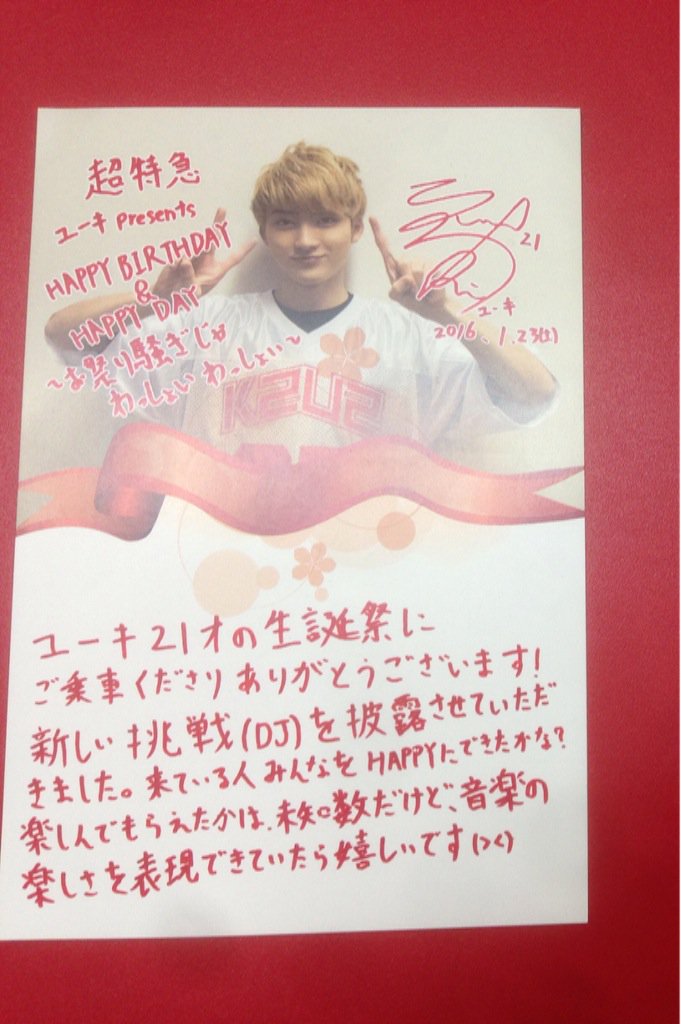 超特急
ユーキ presents
HAPPY BIRTHDAY
&
HAPPY DAY
~お祭り騒ぎじゃ
わっしょい わっしょい~
21
ユーキ
2016.1.23(土)
K2U2
ユーキ21才の生誕祭に
ご乗車くださりありがとうございます!
新しい挑戦(DJ)を披露させていただ
きました。来ている人みんなをHAPPYにできたかな?
楽しんでもらえたかは、未知数だけど、音楽の
楽しさを表現できていたら嬉しいです(><)